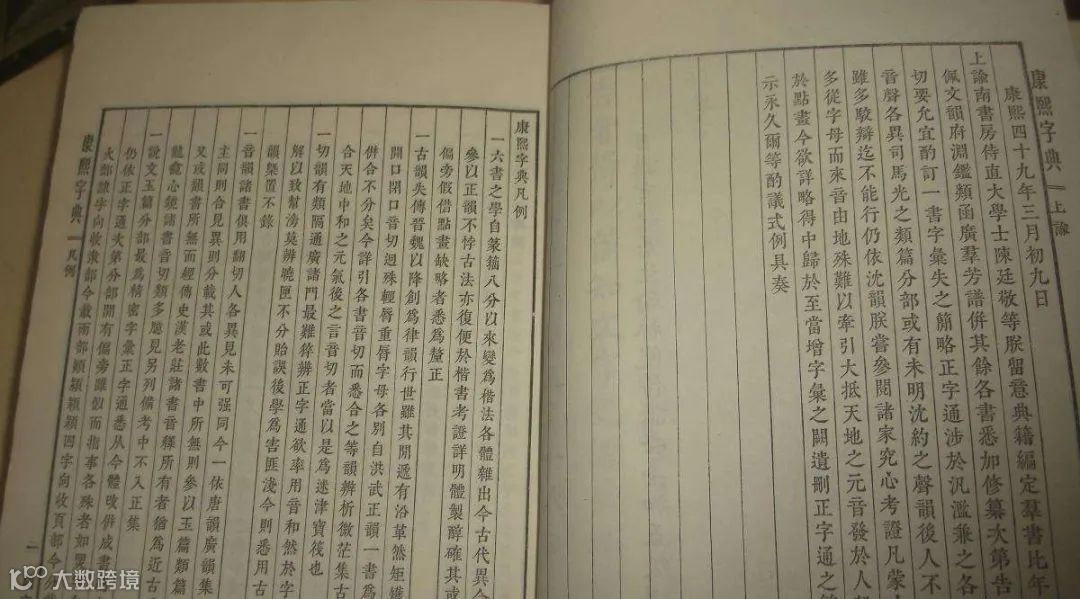 康熙字典 上諭
康熙四十九年三月初九日
上諭南書房侍直大學士陳廷敬等朕留意典籍編定羣書比年
佩文韻府淵鑑類函廣羣芳譜併其餘各書悉加修纂次第告
切要允宜酌訂一書字彙失之簡略正字通涉於汎濫兼之各
音聲各異司馬光之類篇分部或有未明沈約之聲韻後人不
雖多駁辯迄不能行仍依沈韻朕嘗參閱諸家究心考證凡蒙
多從字母而來音由地殊難以牽引大抵天地之元音發於人
於點畫今欲詳略得中歸於至當增字彙之闕遺刪正字通之
示永久爾等酌議式例具奏
康熙字典凡例
一六書之學自篆籀八分以來變為楷法各體雜出今古代異今
參以正韻不悖古法亦復便於楷書考證詳明體製醇確其或
偏旁假借點畫缺略者悉為釐正
一古韻失傳晉魏以降創為律韻行世雖其間遞有沿革然矩
開口閉口音切迥殊輕脣重脣字母各別自洪武正韻一書為
併合不分矣今詳引各書音切而悉合之等韻辨析微茫集古
合天地中和之元氣後之言音切者當以是為迷津寶筏也
一切韻有類隔通廣諸門最難猝辨正字通欲率用音和然於字
解以致幫滂莫辨曉匣不分貽誤後學為害匪淺今則悉用古
韻槩置不錄
一音韻諸書俱用翻切人各異見未可强同今一依唐韻廣韻集
主同則合見異則分載其或此數書中所無則參以玉篇類篇
又或韻書所無而經傳史漢老莊諸書音釋所有者猶為近古
龍龕心鏡諸書音切類多臆見另列備考中不入正集
一說文玉篇分部最為精密字彙正字通悉从今體改併成書
仍依正字通次第分部間有偏旁雖似而指事各殊者如
火部隸字向收隶部今載雨部熲潁穎潁四字向收頁部今
康熙字典 凡例
二
大数跨境